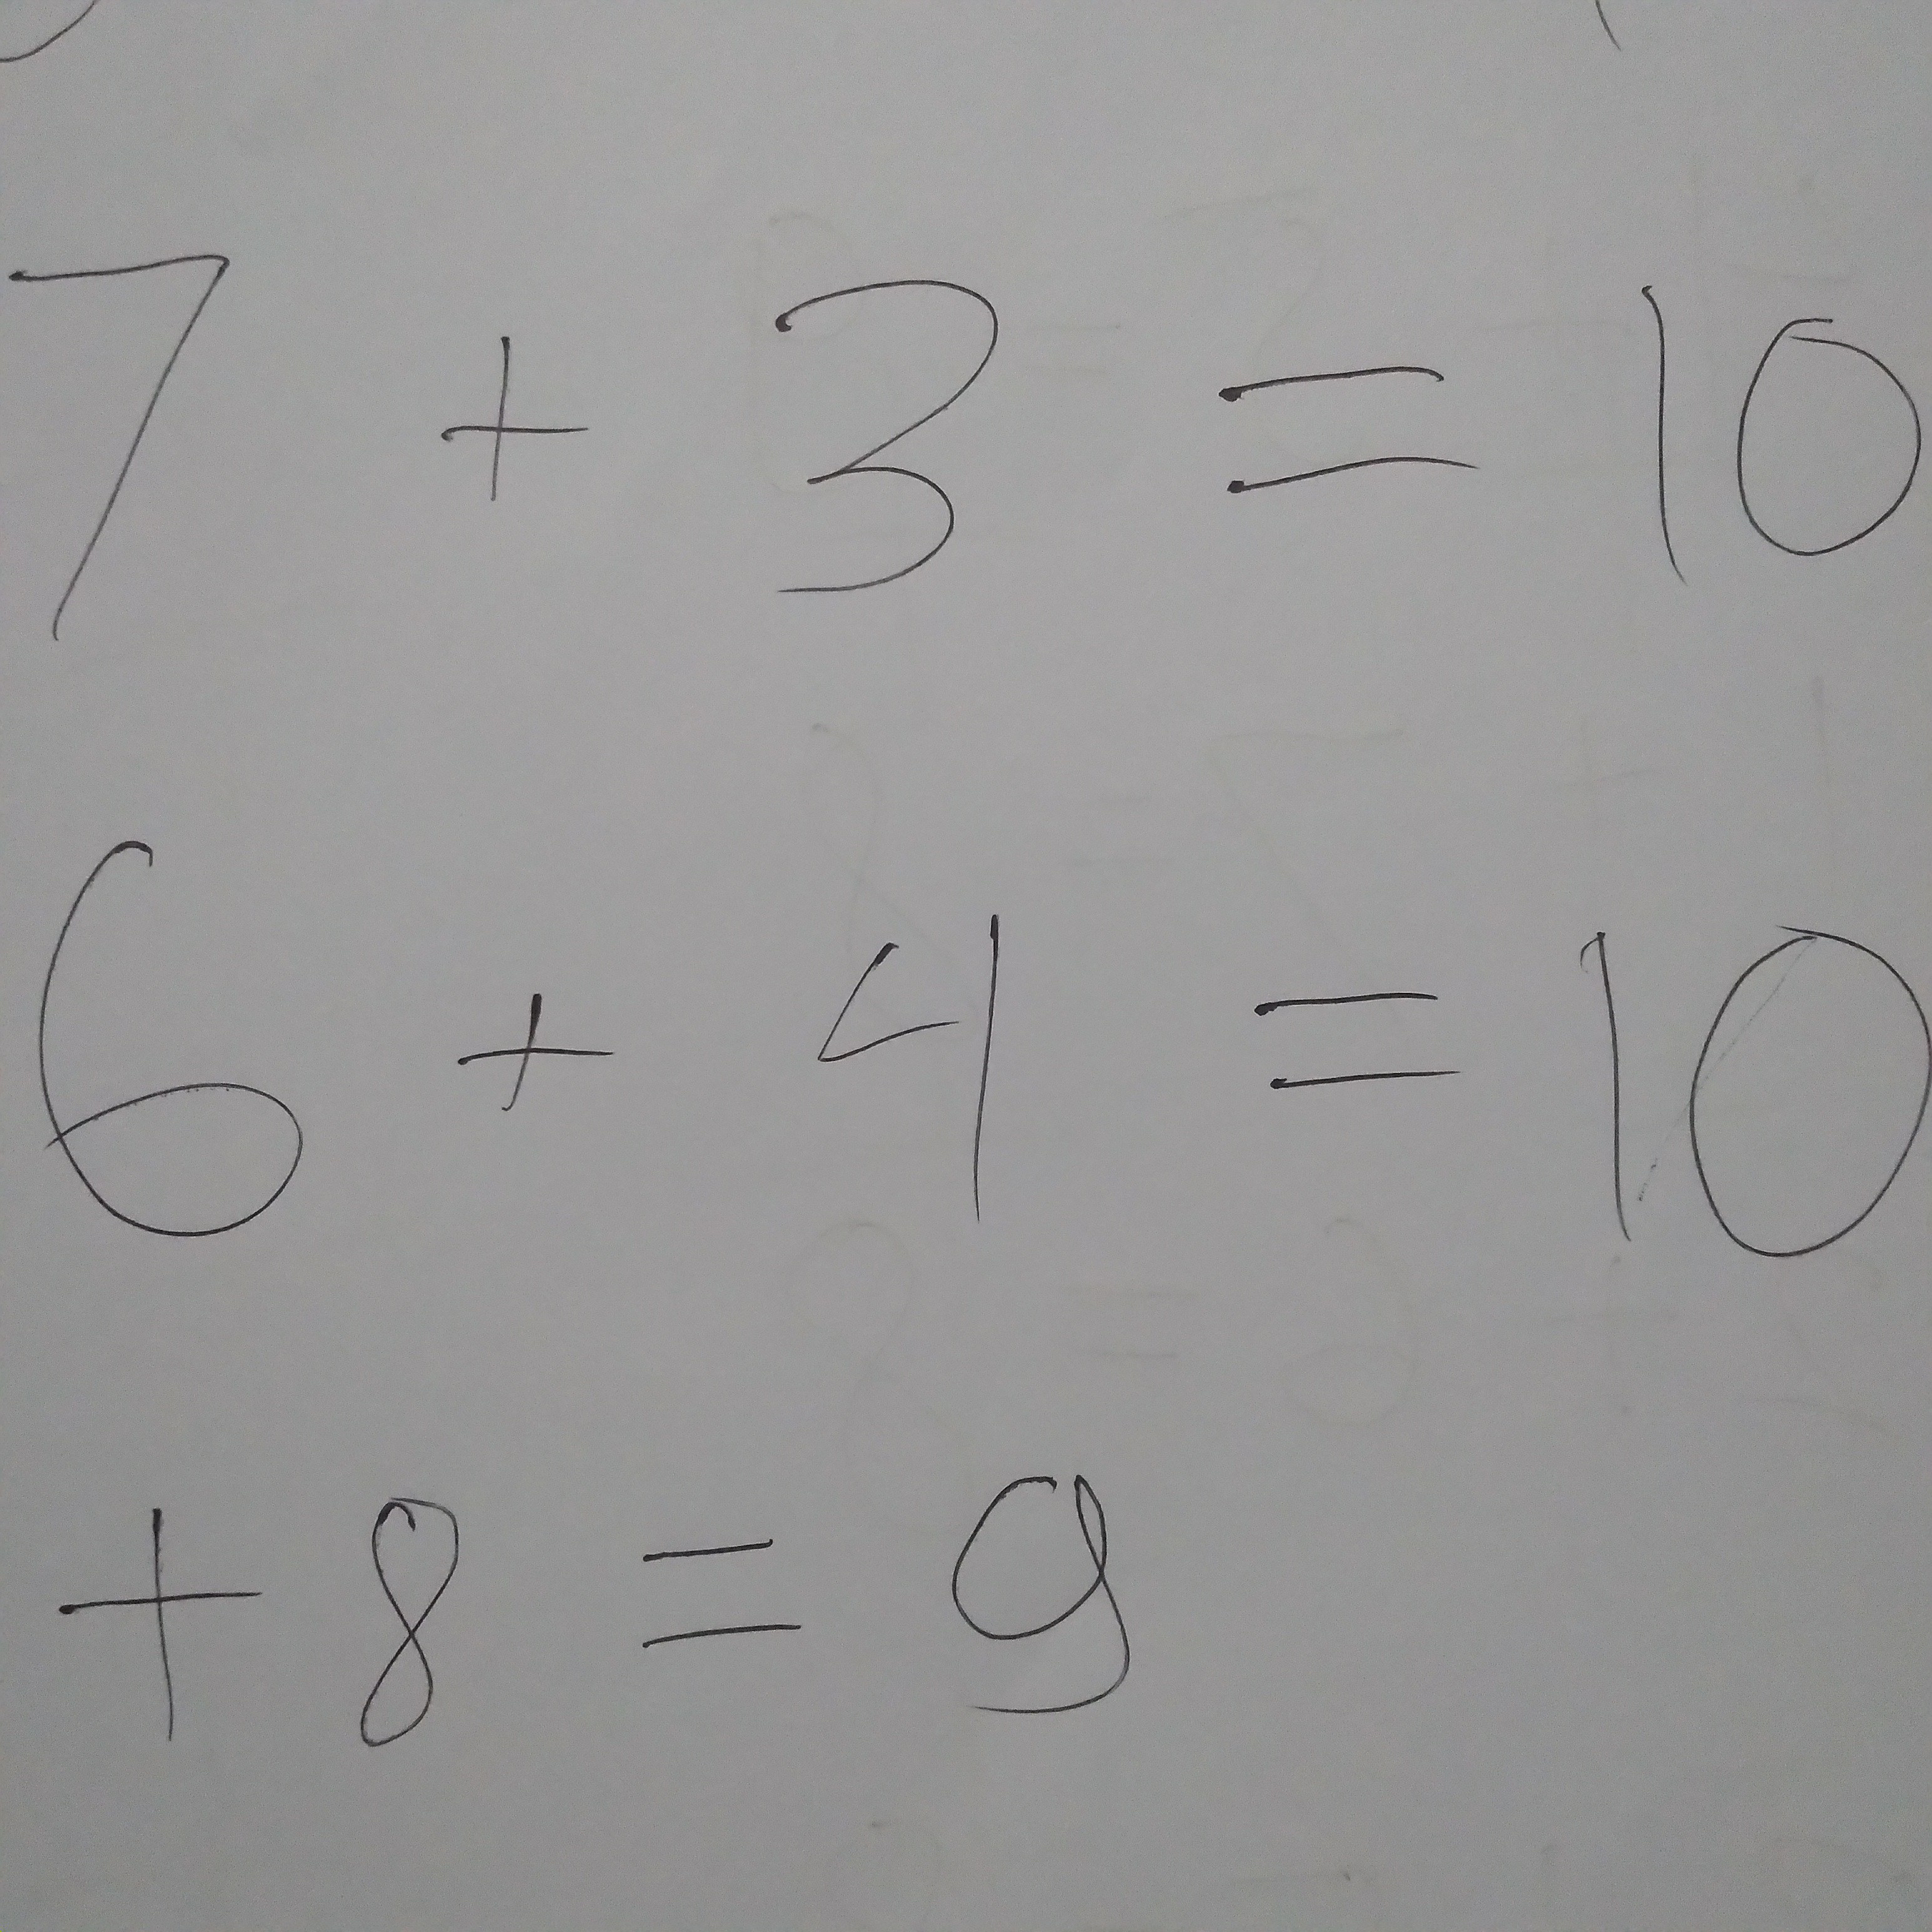 7 + 3 = 10
6 + 4 = 10
+ 8 = 9